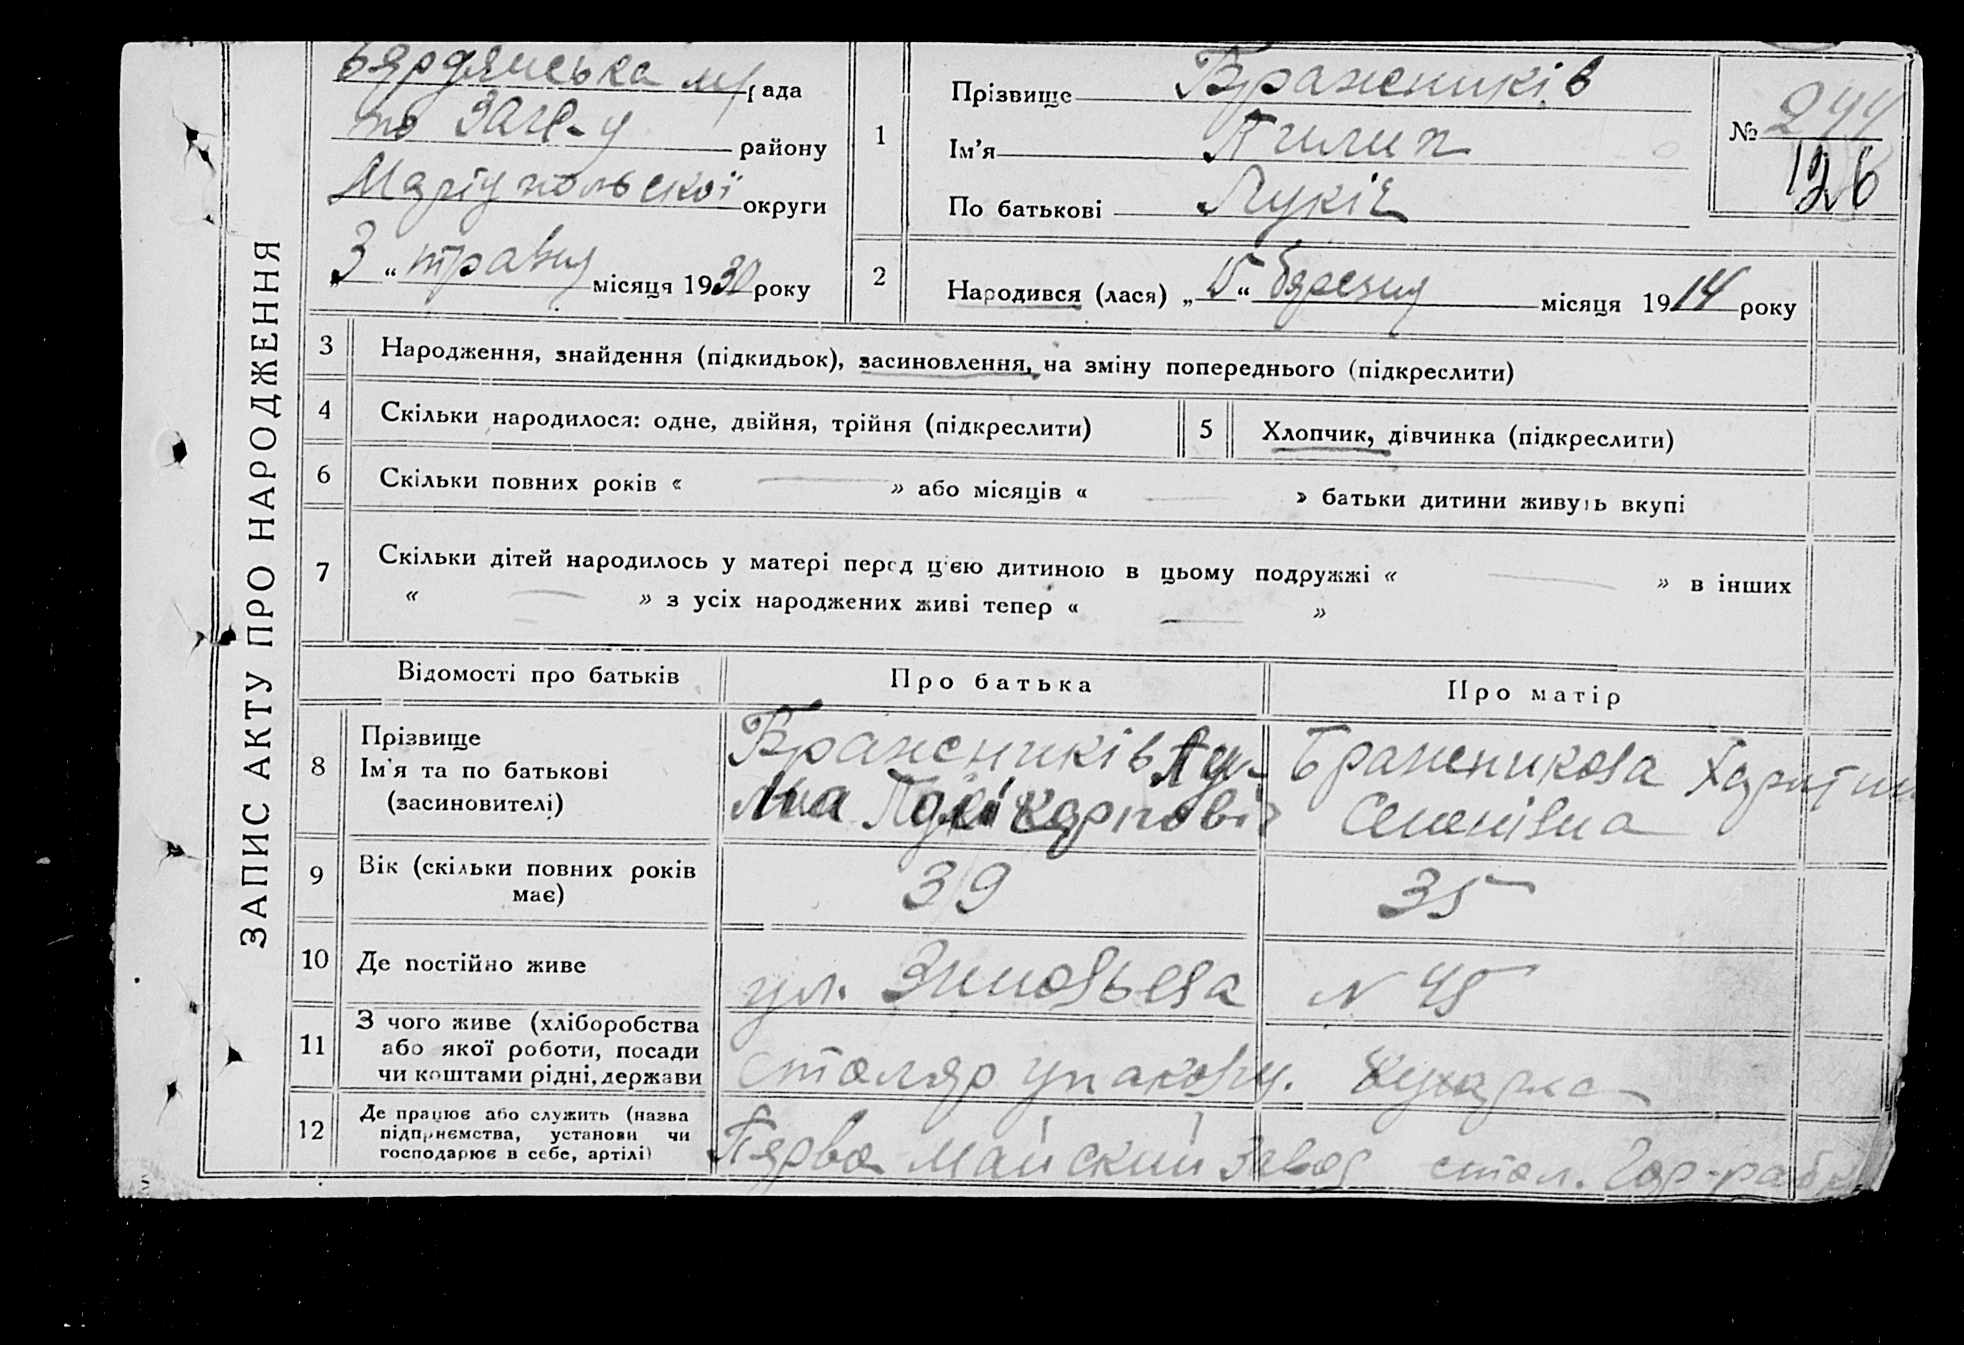 ЗАПИС АКТУ ПРО НАРОДЖЕННЯ
Бярдянська м/рада
по ЗАГС-у району
Маріупольської округи
„3“ травня місяця 1930 року
1
Прізвище Бражників
Ім'я Пилип
По батькові Лукіч
№ 244
126
2
Народився (лася) „15“ бярезня місяця 1914 року
3 Народження, знайдення (підкидьок), засиновлення, на зміну попереднього (підкреслити)
4 Скільки народилося: одне, двійня, трійня (підкреслити)
5 Хлопчик, дівчинка (підкреслити)
6 Скільки повних років « — » або місяців « — » батьки дитини живуть вкупі
7 Скільки дітей народилось у матері перед ц'єю дитиною в цьому подружжі « — » в інших
« — » з усіх народжених живі тепер « — »
Відомості про батьків
Про батька
Про матір
8 Прізвище
Ім'я та по батькові
(засиновителі)
Бражників Лу-
Полікарповіч
Бражникова
Семенівна
9 Вік (скільки повних років
має)
39
35
10 Де постійно живе
ул. Зиновьева
N 45
11 З чого живе (хліборобства
або якої роботи, посади
чи коштами рідні, держави
столяр упаковч.
Кухарка
12 Де працює або служить (назва
підприємства, установи чи
господарює в себе, артілі)
Пярво Майский завод
стол. Гор-раб